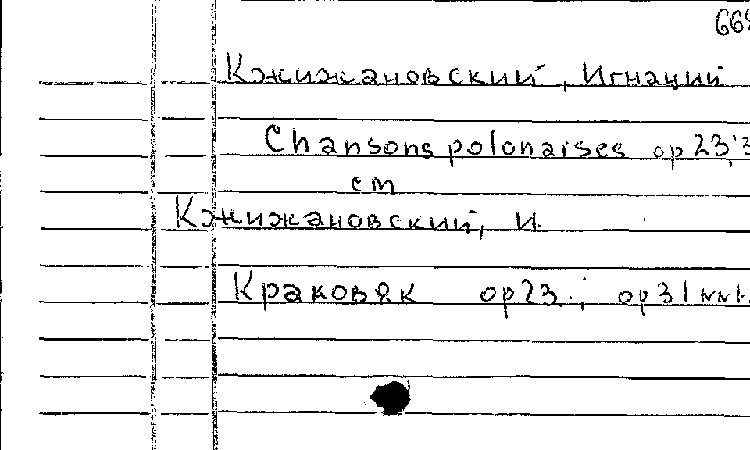 669
Кжижановский, Игнаций
Chansons polonaises op 23,
ст
Кжижановский, И.
Краковяк op23.; op31